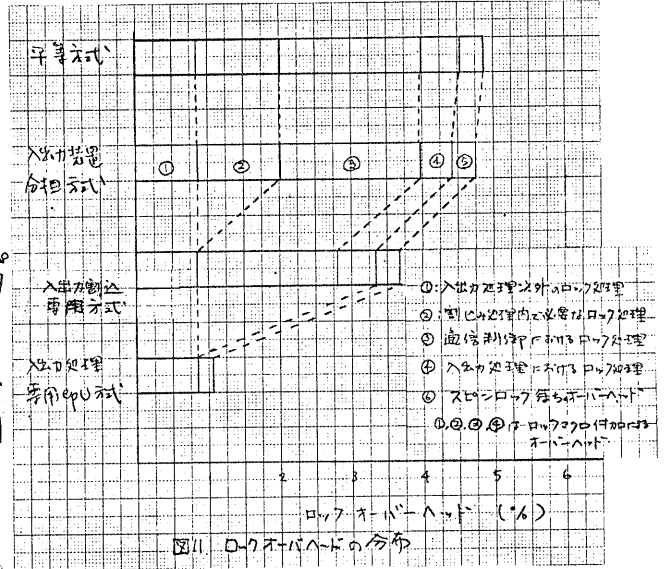 平等方式
入出力装置
分担方式
① ② ③ ④ ⑤
入出力割込
専用方式
入出力処理
専用CPU方式
①:入出力処理以外のロック処理
②:割込み処理内で必要なロック処理
③ 通信制御におけるロック処理
④ 入出力処理におけるロック処理
⑥ スピンロック待ちオーバーヘッド
①,②,③,④はロックマクロ付加による
オーバーヘッド
2 3 4 5 6
ロックオーバーヘッド (%)
図11 ロックオーバヘッドの分布